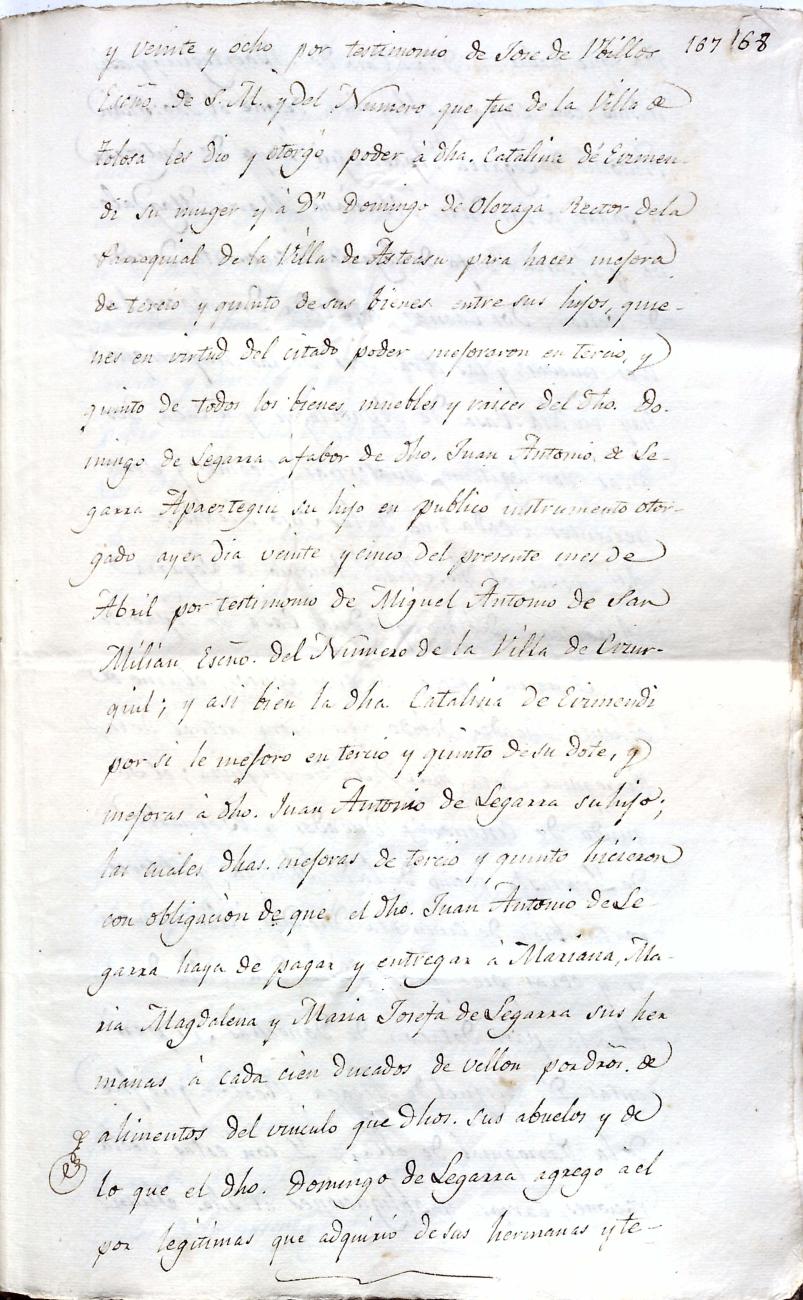 167 168
y veinte y ocho por testimonio de Jose de Vbillos
Escño. de S. M. y del Numero que fue de la Villa de
Tolosa les dio y otorgó poder à dha. Catalina de Eizmen-
di su muger y à Dn. Domingo de Olozaga Rector de la
Parroquial de la Villa de Asteasu para hacer mejora
de tercio y quinto de sus bienes entre sus hijos, quie-
nes en virtud del citado poder mejoraron en tercio, y
quinto de todos los bienes muebles y raices del dho. Do-
mingo de Legarra à fabor de dho. Juan Antonio de Le-
garra Apaeztegui su hijo en publico instrumento otor-
gado ayer dia veinte y cinco del presente mes de
Abril por testimonio de Miguel Antonio de San
Milian Escño. del Numero de la Villa de Cizur-
quil; y asi bien la dha Catalina de Eizmendi
por si le mejoró en tercio y quinto de su dote, y
mejoras à dho. Juan Antonio de Legarra su hijo;
las cuales dhas. mejoras de tercio y quinto hicieron
con obligacion de que el dho. Juan Antonio de Le-
garra haya de pagar y entregar à Mariana, Ma-
ria Magdalena y Maria Josefa de Legarra sus her
manas à cada cien ducados de vellon por dros. de
alimentos del vinculo que dhos. sus abuelos y de
lo que el dho. Domingo de Legarra agrego à el
por legitimas que adquirió de sus hermanas y te-